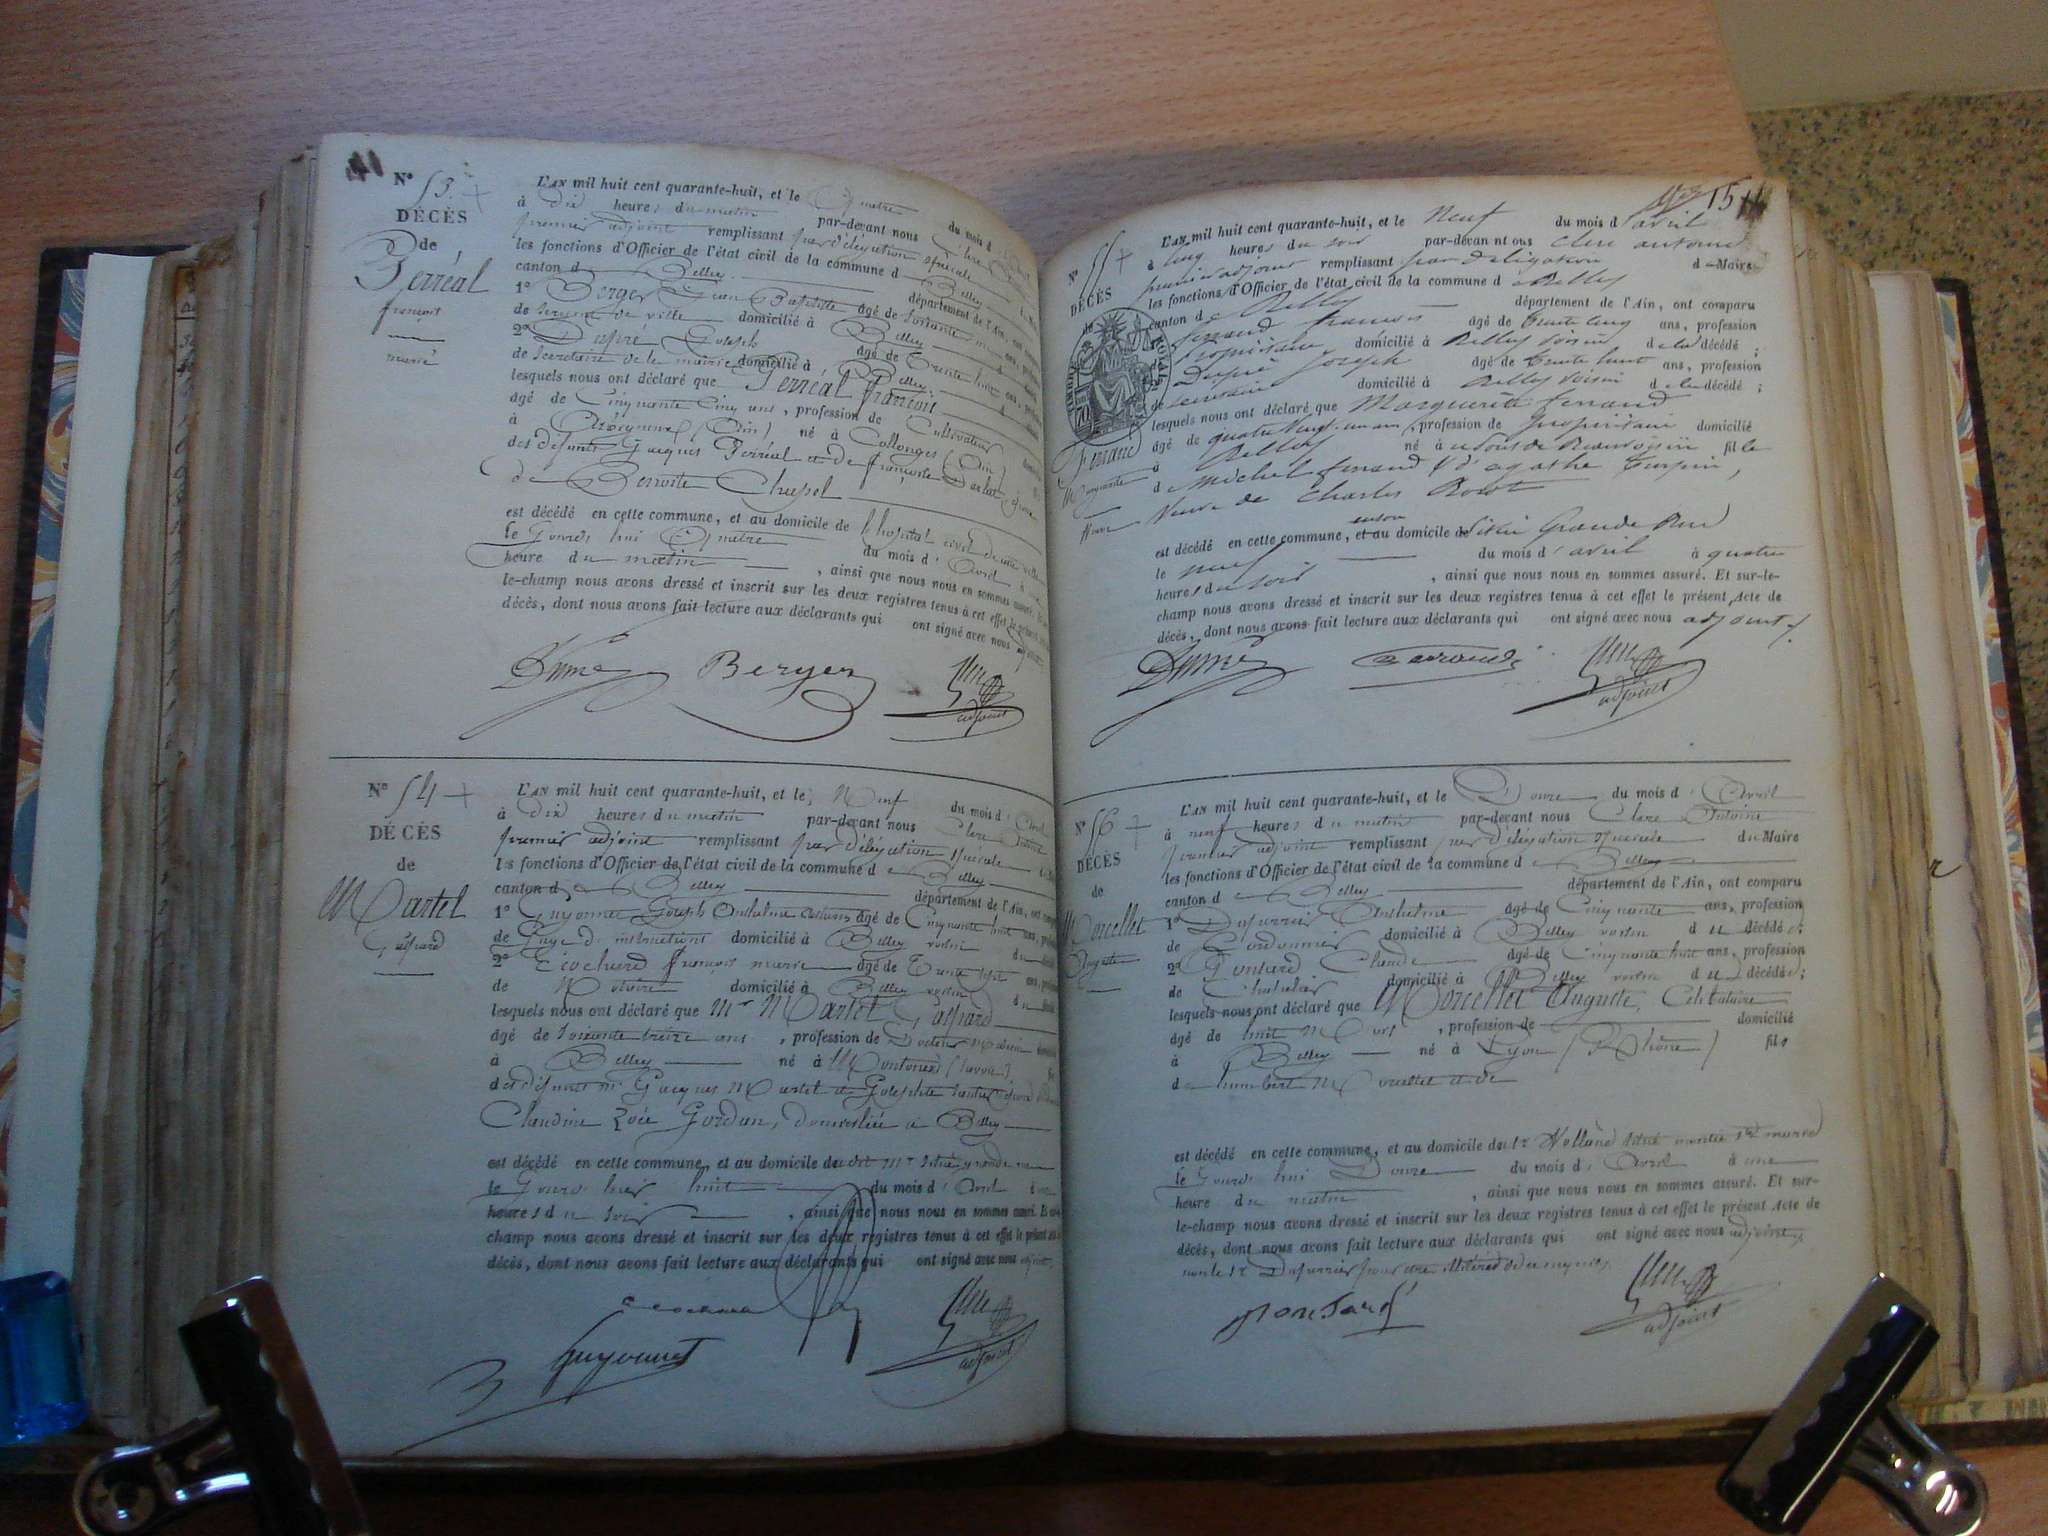 N° 53
DÉCÈS
de
Perréal
françois
marié
L'AN mil huit cent quarante-huit, et le du mois d'
à dix heures du matin par-devant nous
premier adjoint remplissant par délégation spéciale
les fonctions d'Officier de l'état civil de la commune de Belley
canton de Belley département de l'Ain,
1° Berger Jean Baptiste âgé de soixante ans,
de sergent de ville domicilié à Belley
2° Dupré Joseph âgé de trente huit ans,
de secrétaire de la mairie domicilié à Belley
lesquels nous ont déclaré que Perréal françois
âgé de Cinquante Cinq ans, profession de Cultivateur
à (Ain) né à Collonges (Ain)
des défunts Jacques Perréal et de françoise
de Benoite
est décédé en cette commune, et au domicile de l'hospital civil de cette ville
le jourd'hui du mois d'Avril à
heure du matin, ainsi que nous nous en sommes assuré.
le-champ nous avons dressé et inscrit sur les deux registres tenus à cet effet le présent
décès, dont nous avons fait lecture aux déclarants qui ont signé avec nous
Berger
adjoint
N° 54
DÉCÈS
de
Martel
Gaspard
L'AN mil huit cent quarante-huit, et le Neuf du mois d'Avril
à dix heures du matin par-devant nous Clerc Antoine
premier adjoint remplissant par délégation spéciale
les fonctions d'Officier de l'état civil de la commune de Belley
canton de Belley département de l'Ain, ont
1° Guyonnet Joseph Anthelme âgé de Cinquante huit ans,
de Juge d'instruction domicilié à Belley voisin du
2° françois marie âgé de Trente sept ans,
de Notaire domicilié à Belley voisin du
lesquels nous ont déclaré que Mr Martel Gaspard
âgé de soixante treize ans, profession de Docteur Médecin
à Belley né à (Savoie)
des défunts Mr Jacques Martel et
Claudine Zoée Gordan, domiciliée à Belley
est décédé en cette commune, et au domicile du dit Mr situé grande rue
le jourd'hier huit du mois d'Avril à
heures du soir, ainsi que nous nous en sommes assuré. Et
champ nous avons dressé et inscrit sur les deux registres tenus à cet effet le présent
décès, dont nous avons fait lecture aux déclarants qui ont signé avec nous adjoint
Guyonnet
adjoint
15
N° 55
DÉCÈS
de
Ferrand
Marguerite
Veuve
L'AN mil huit cent quarante-huit, et le Neuf du mois d'avril
à cinq heures du soir par-devant nous Clerc antoine
premier adjoint remplissant par délégation d Maire
les fonctions d'Officier de l'état civil de la commune de Belley
canton de Belley département de l'Ain, ont comparu
ferrand francois âgé de trente cinq ans, profession
propriétaire domicilié à Belley voisin de la décédé ;
Dupré Joseph âgé de trente huit ans, profession
de secrétaire domicilié à Belley voisin de la décédé ;
lesquels nous ont déclaré que Marguerite ferrand
âgé de quatre Vingt un ans, profession de propriétaire domicilié
à Belley né à au pont de Beauvoisin fille
de Michel ferrand & d'agathe Turpin,
Veuve de Charles
est décédé en cette commune, et au domicile de situé Grande Rue
le neuf du mois d'avril à quatre
heures du soir, ainsi que nous nous en sommes assuré. Et sur-le-
champ nous avons dressé et inscrit sur les deux registres tenus à cet effet le présent Acte de
décès, dont nous avons fait lecture aux déclarants qui ont signé avec nous adjoint
adjoint
N° 56
DÉCÈS
de
Morcellet
Auguste
L'AN mil huit cent quarante-huit, et le Douze du mois d'Avril
à neuf heures du matin par-devant nous Clerc Antoine
premier adjoint remplissant par délégation spéciale du Maire
les fonctions d'Officier de l'état civil de la commune de Belley
canton de Belley département de l'Ain, ont comparu
1° Dufurrier Anthelme âgé de Cinquante ans, profession
de Cordonnier domicilié à Belley voisin du décédé ;
2° Claude âgé de Cinquante huit ans, profession
de domicilié à Belley voisin du décédé ;
lesquels nous ont déclaré que Morcellet Auguste, Célibataire
âgé de huit Mois, profession de domicilié
à Belley né à Lyon (Rhône) fils
d'humbert Morcellet et de
est décédé en cette commune, et au domicile du Sr situé montée
le jourd'hui Douze du mois d'Avril à une
heure du matin, ainsi que nous nous en sommes assuré. Et sur-
le-champ nous avons dressé et inscrit sur les deux registres tenus à cet effet le présent Acte de
décès, dont nous avons fait lecture aux déclarants qui ont signé avec nous adjoint,
non le Sr Dufurrier pour être illitéré de ce enquis.
adjoint